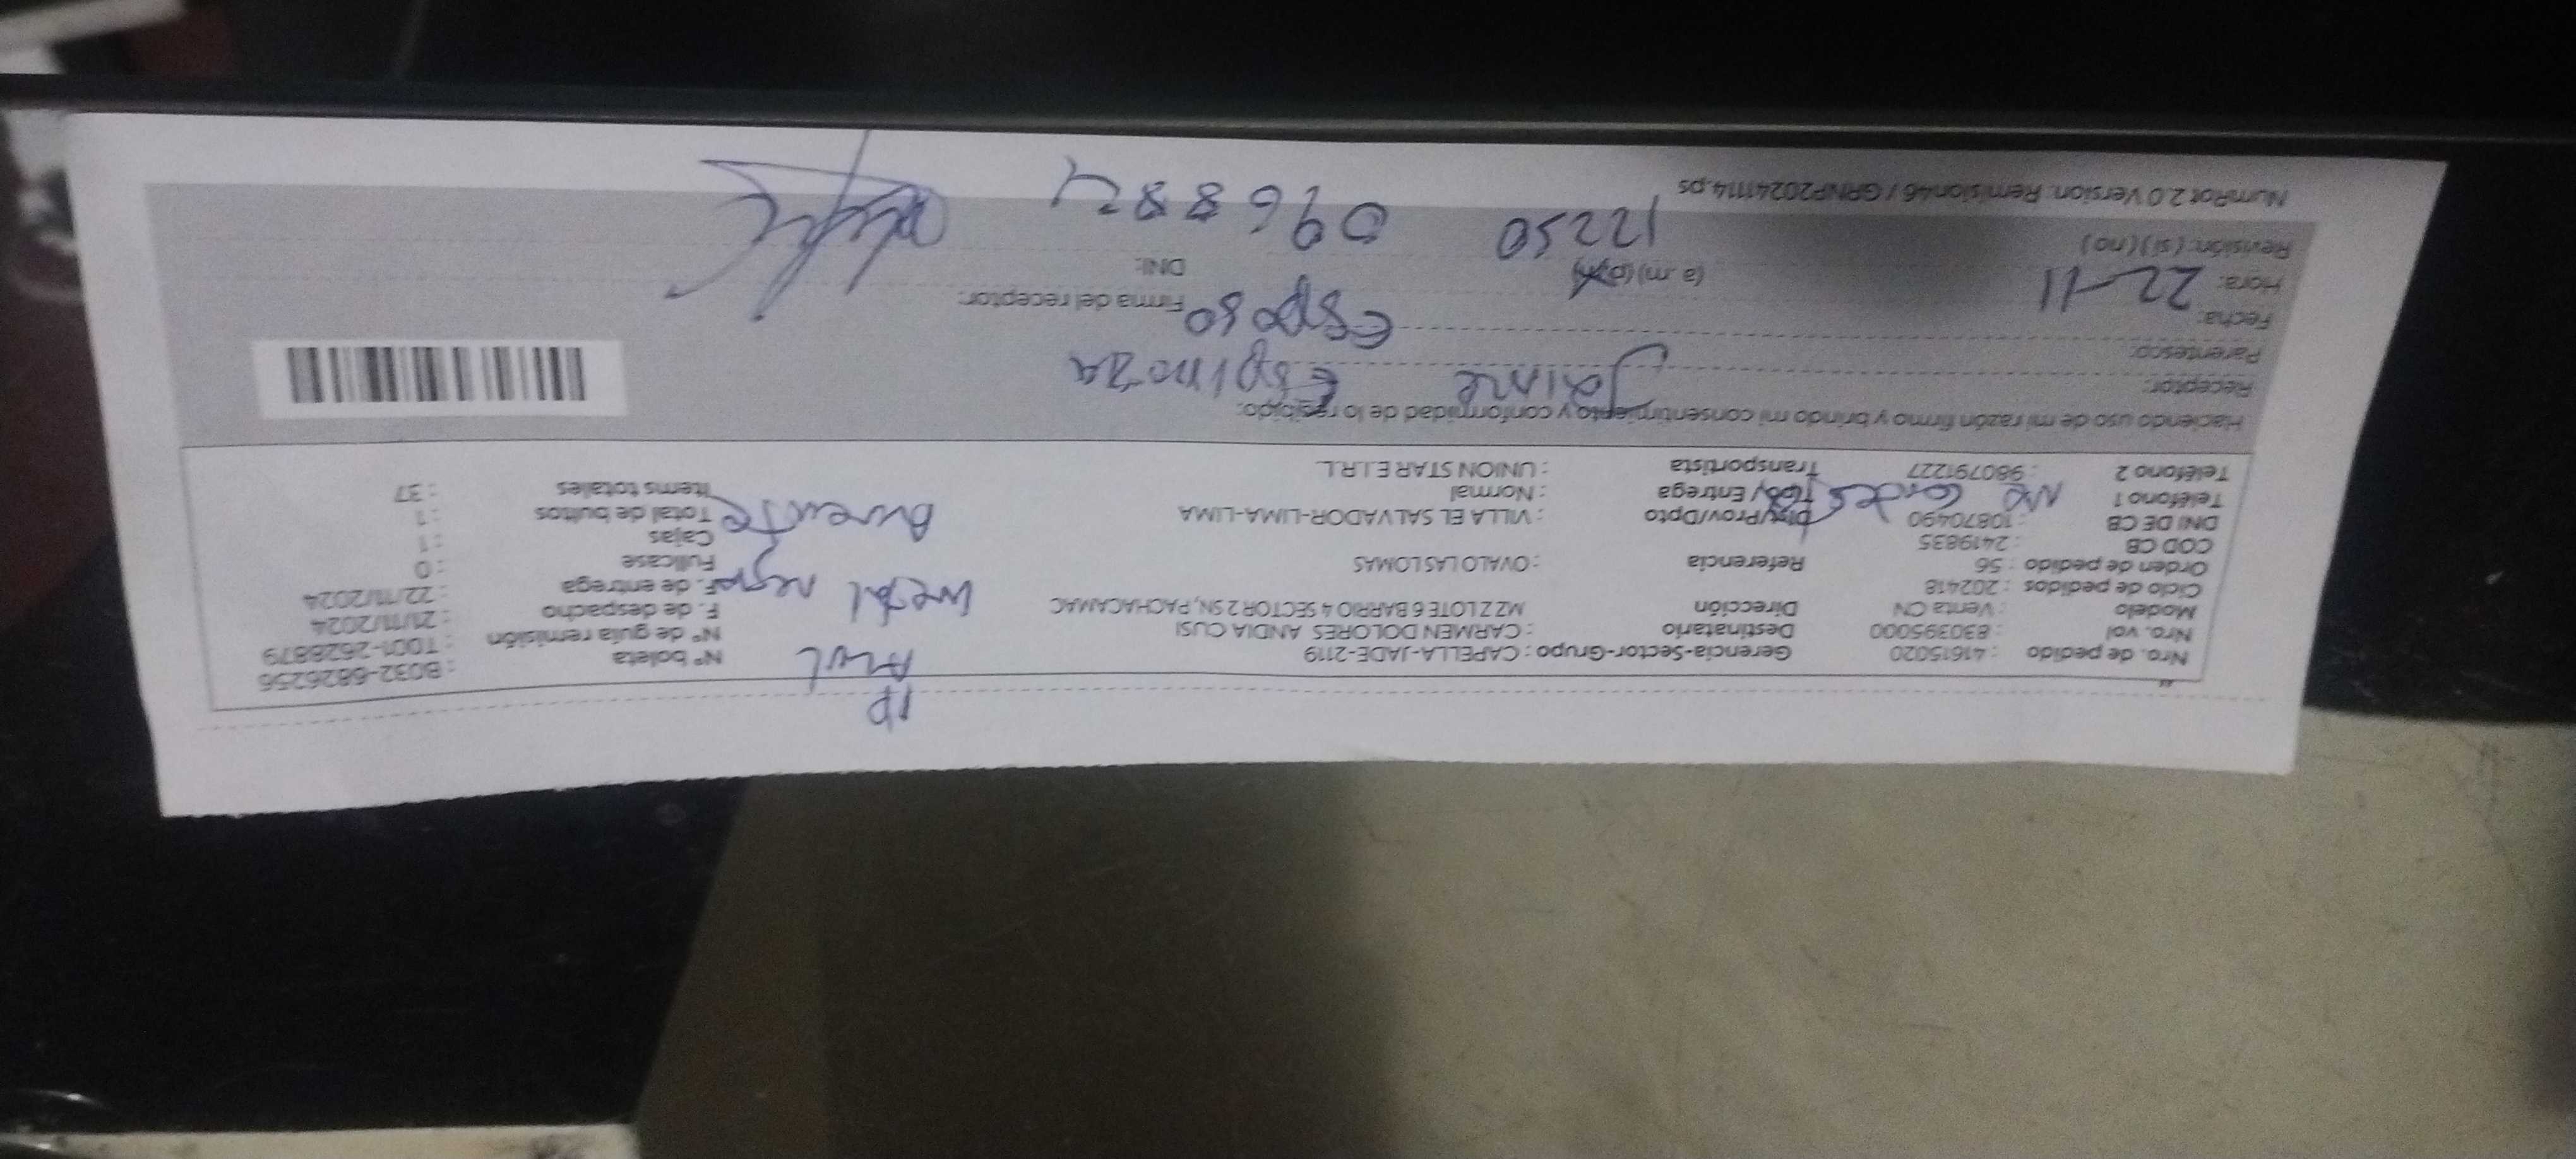 1P
Nro. de pedido : 41615020 Gerencia-Sector-Grupo : CAPELLA-JADE-2119 AZUL Nº boleta : B032-6826256
Nro. vol : 830395000 Destinatario : CARMEN DOLORES ANDIA CUSI Nº de guía remisión : T001-2628879
Modelo : Venta CN Dirección MZ Z LOTE 6 BARRIO 4 SECTOR 4 SECTOR 2 SN, PACHACAMAC metal negro F. de despacho : 21/11/2024
Ciclo de pedidos : 202418 F. de entrega : 22/11/2024
Orden de pedido : 56 Referencia : OVALO LAS LOMAS Fullcase : 0
COD CB : 2419835 Cajas : 1
DNI DE CB : 10870490 Dist/Prov/Dpto : VILLA EL SALVADOR-LIMA-LIMA Ausente Total de bultos : 1
Teléfono 1 No contesta Tipo/Entrega : Normal Items totales : 37
Teléfono 2 : 980791227 Transportista : UNION STAR E.I.R.L.
Haciendo uso de mi razón firmo y brindo mi consentimiento y conformidad de lo recibido:
Receptor: Jaime Espinoza
Parentesco: Esposo
Fecha: 22-11 Firma del receptor:
Hora: (a.m) (p.m) DNI:
Revisión: (si) (no) 12250 096882
NumRot 2.0 Version: Remision46 / GRNP20241114.ps